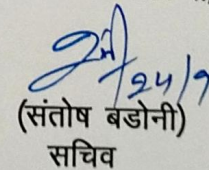 24/9
(संतोष बडोनी)
सचिव